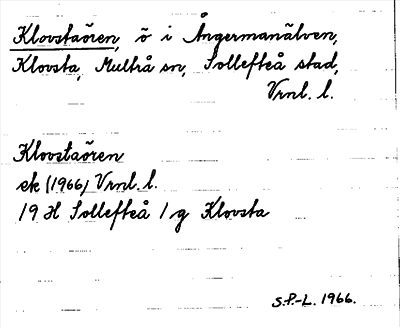 Klovstaören, ö i Ångermanälven,
Klovsta, Multrå sn, Sollefteå stad,
Vrnl. l.
Klovstaören
ek (1966) Vrnl. l.
19 H Sollefteå 1 g Klovsta
S.P.-L. 1966.